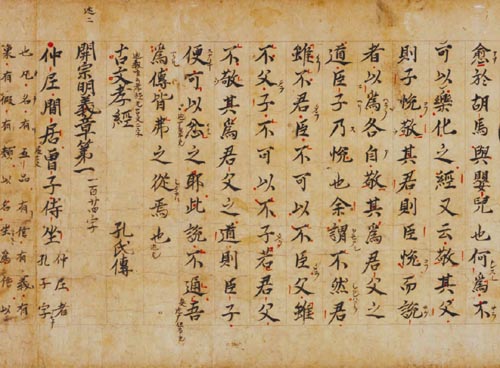 愈於胡馬與嬰兒也何為不
可以樂化之經又云敬其父
則子悅敬其君則臣悅而說
者以為各自敬其為君父之
道臣子乃悅也余謂不然君
雖不君臣不可以不臣父雖
不父子不可以不子若君父
不敬其為君父之道則臣子
便可以忿之耶此說不通吾
為傳皆弗之從焉也
古文孝經 孔氏傳
開宗明義章第一 一百廿四字
仲尼閒居曾子侍坐 仲尼者孔子字
也凡名有五品有信有義有
象有假有類以名生為信以